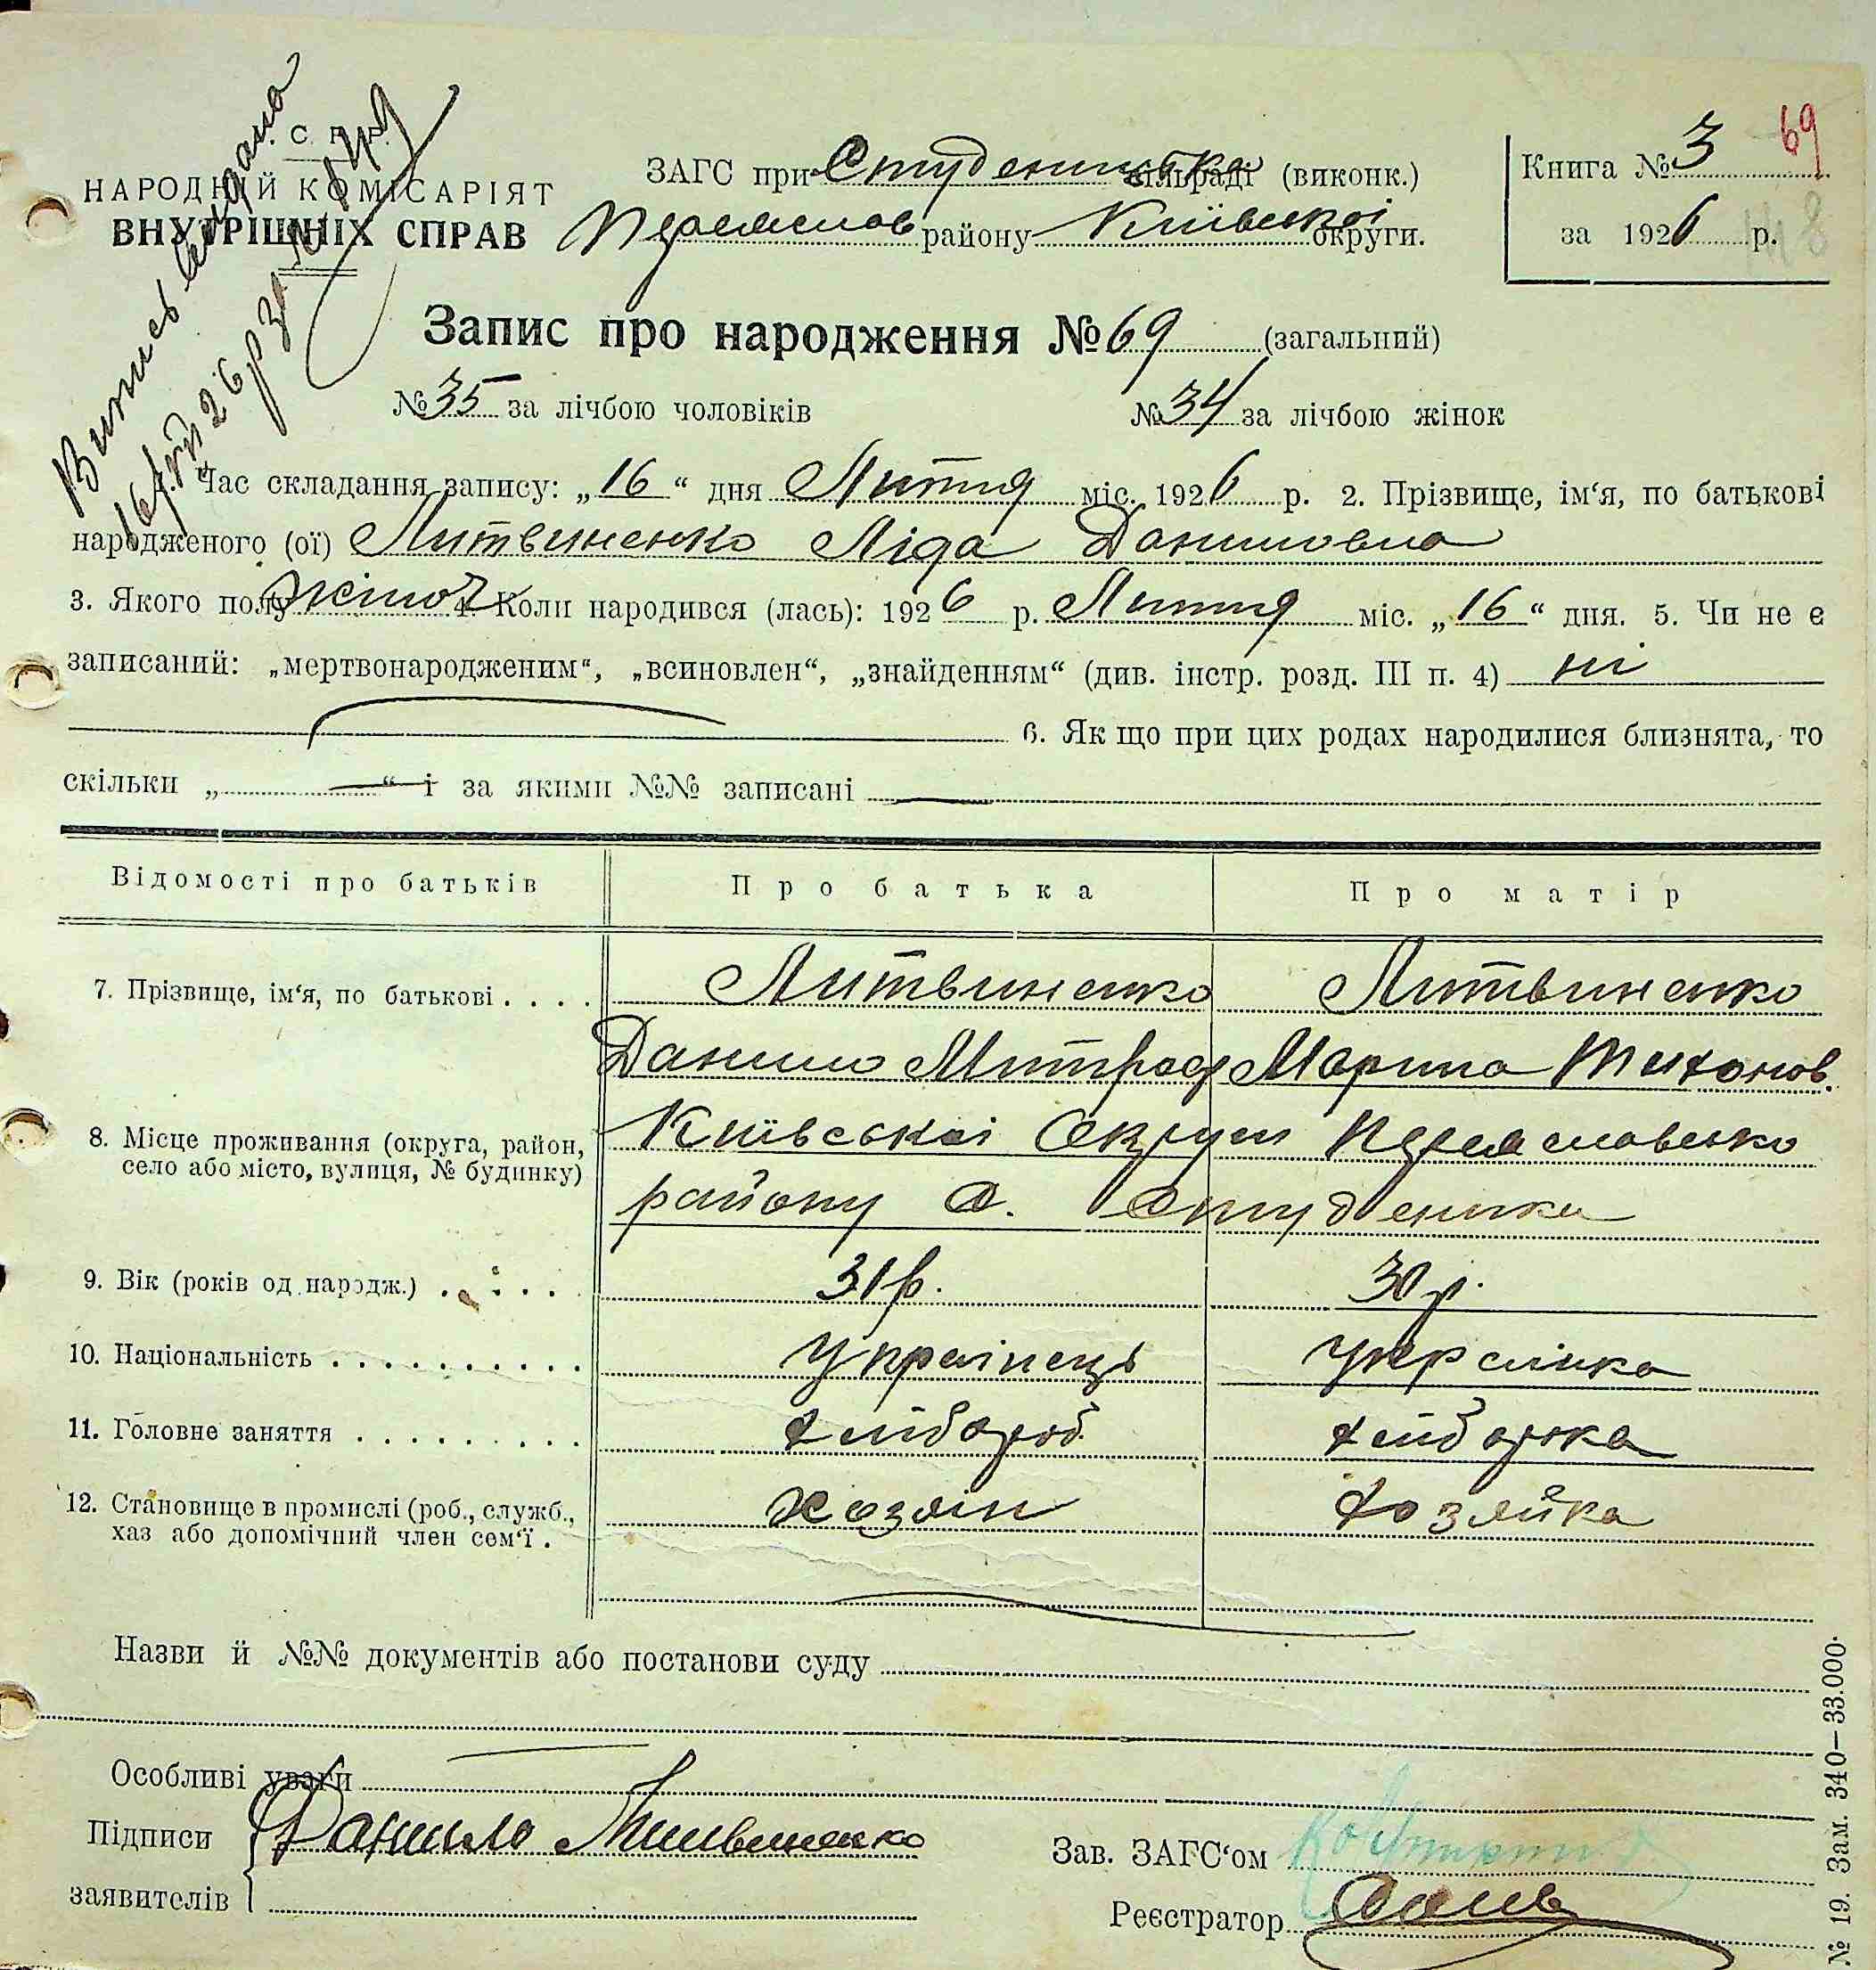 Випись видана
16/VII 26 р за № 149
С. Р. Р.
НАРОДНІЙ КОМІСАРІЯТ
ВНУТРІШНІХ СПРАВ
ЗАГС при Студениках сільраді (виконк.)
Переяслов району Київської округи.
Книга № 3
69
за 1926 р.
Запис про народження № 69 (загальний)
№ 35 за лічбою чоловіків № 34 за лічбою жінок
Час складання запису: „16“ дня Липня міс. 1926 р. 2. Прізвище, ім‘я, по батькові
народженого (ої) Литвиненко Ліда Даниловна
3. Якого полу жіноч 4. Коли народився (лась): 1926 р. Липня міс. „16“ дня. 5. Чи не є
записаний: „мертвонародженим“, „всиновлен“, „знайденням“ (див. інстр. розд. III п. 4) ні
6. Як що при цих родах народилися близнята, то
скільки „—“ і за якими №№ записані —
Відомості про батьків Про батька Про матір
7. Прізвище, ім‘я, по батькові . . . . Литвиненко Литвиненко
Данило Митроф Марина Тихонов.
8. Місце проживання (округа, район,
село або місто, вулиця, № будинку)
Київської Округи Переяславсько
району с. Студеники
9. Вік (років од народж.) . . . . . 31 р. 30 р.
10. Національність . . . . . . . . . . Українець Українка
11. Головне заняття . . . . . . . . . хлібороб хліборка
12. Становище в промислі (роб., служб.,
хаз або допомічний член сем‘ї .
хозяін хозяйка
Назви й №№ документів або постанови суду
Особливі уваги
Підписи
заявителів
Данило Литвиненко
Зав. ЗАГС‘ом
Реєстратор
№ 19. Зам. 340—33.000.